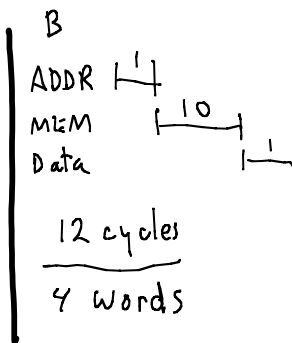 B
ADDR 1
MEM 10
Data 1
12 cycles
4 words